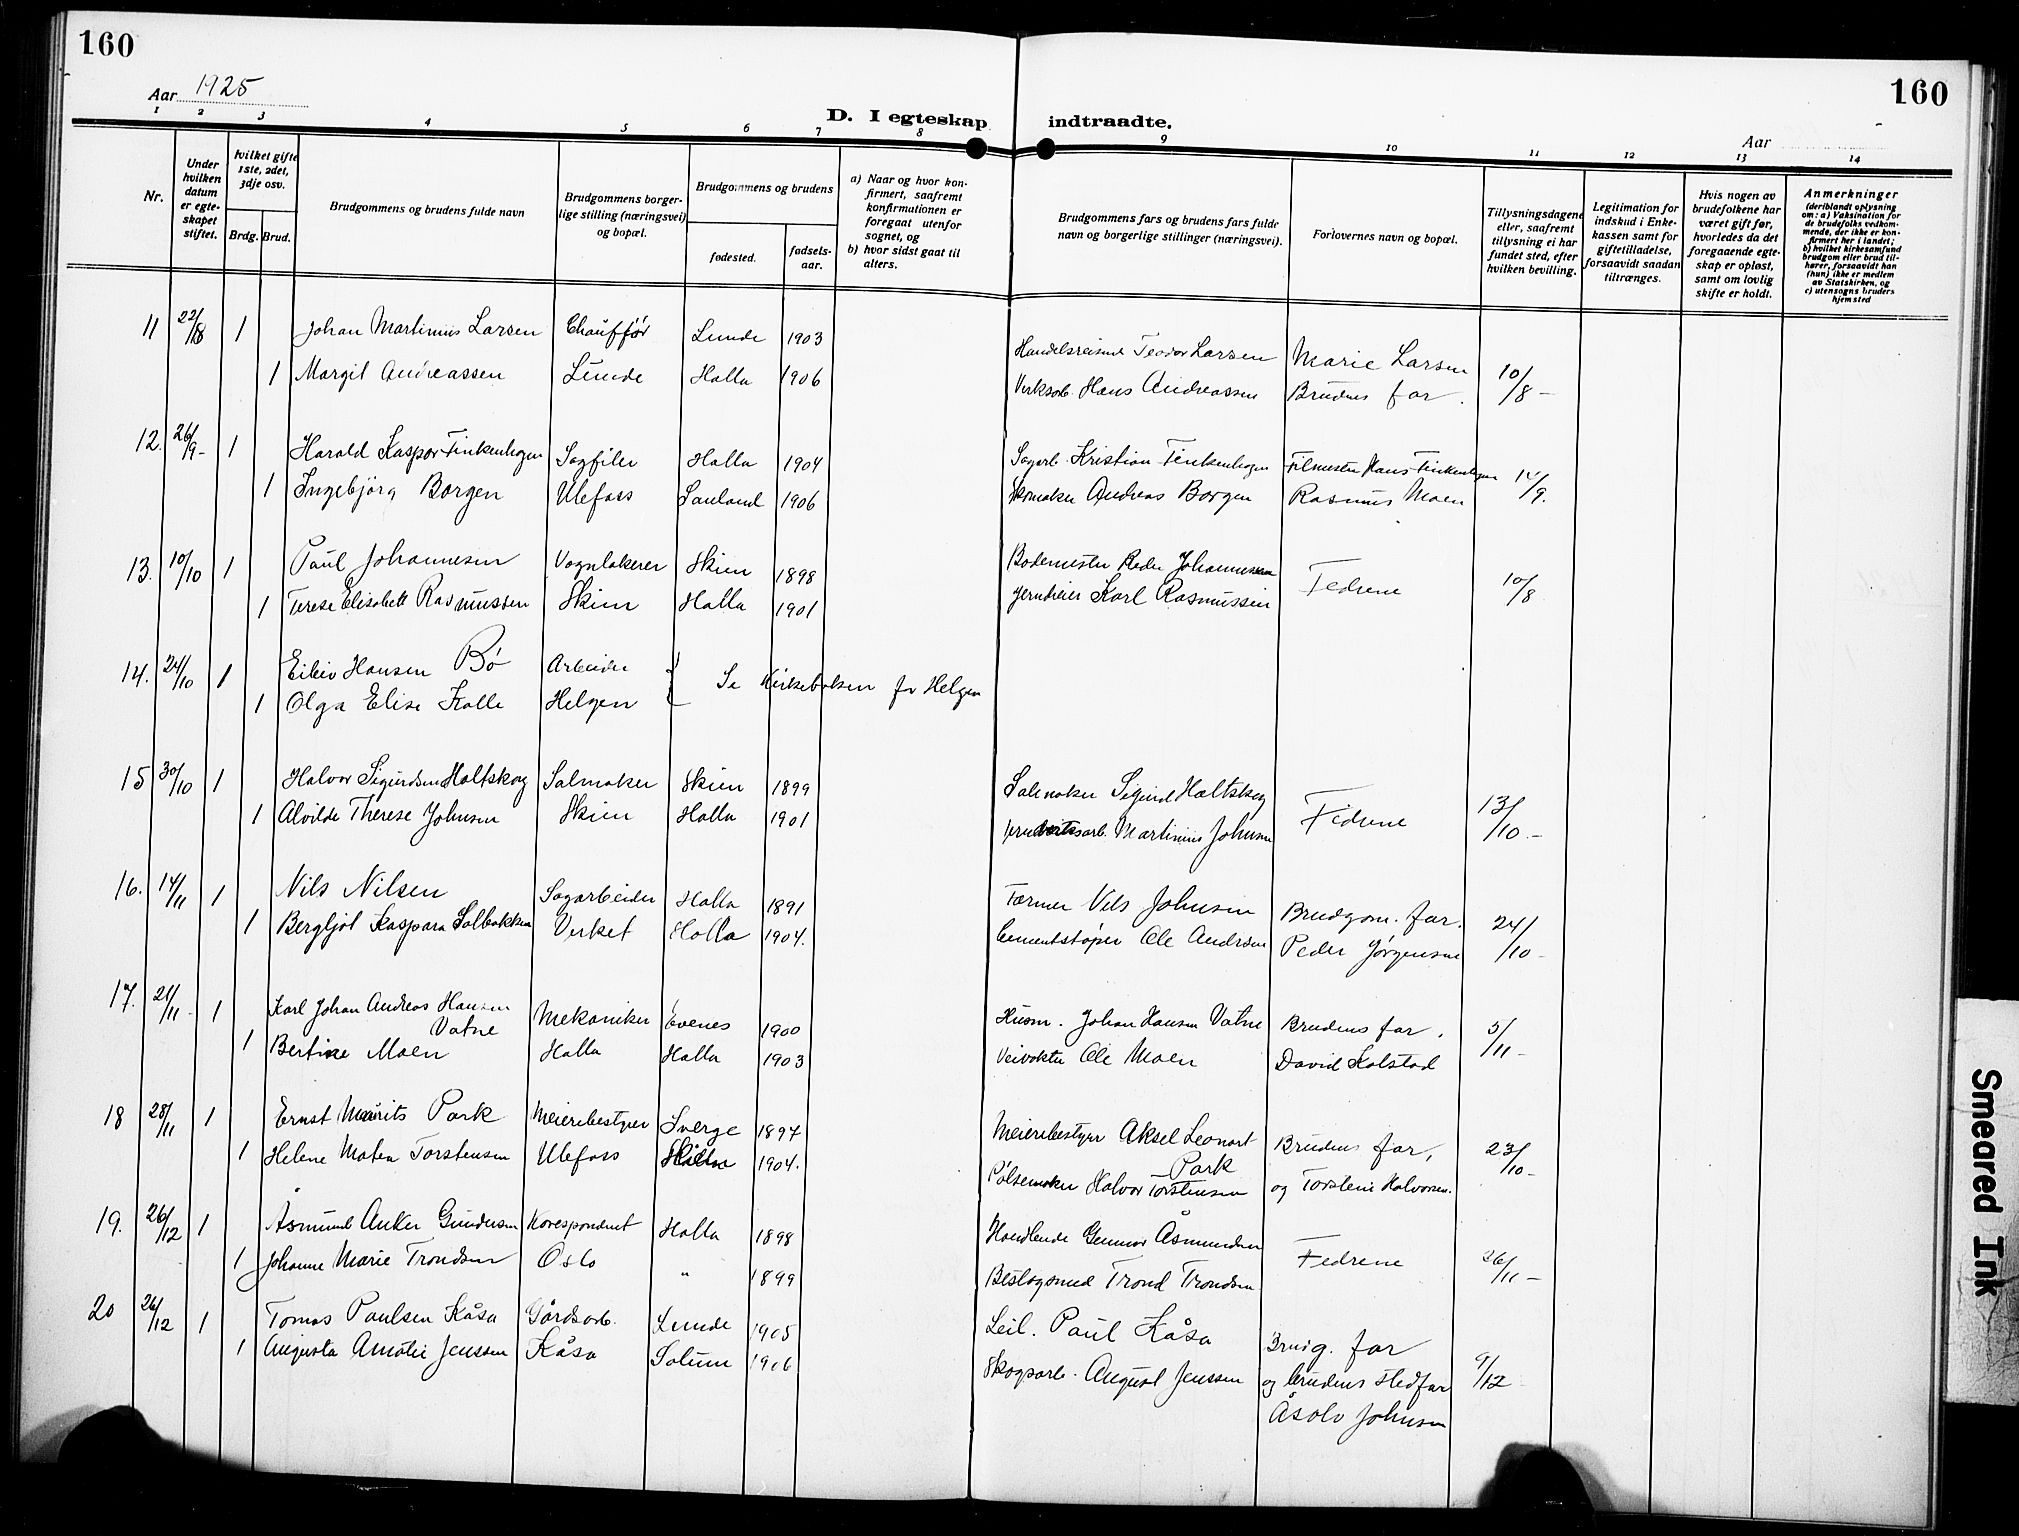 160
160
Aar 1925
D. I egteskap indtraadte.
Aar
1 2 3 4 5 6 7 8 9 10 11 12 13 14
Nr.
Under hvilken datum er egteskapet stiftet.
hvilket gifte 1ste, 2det, 3dje osv.
Brdg. Brud.
Brudgommens og brudens fulde navn
Brudgommens borgerlige stilling (næringsvei) og bopæl.
Brudgommens og brudens
fødested.
fødselsaar.
a) Naar og hvor konfirmert, saafremt konfirmationen er foregaat utenfor sognet, og
b) hvor sidst gaat til alters.
Brudgommens fars og brudens fars fulde navn og borgerlige stillinger (næringsvei).
Forlovernes navn og bopæl.
Tillysningsdagene eller, saafremt tillysning ei har fundet sted, efter hvilken bevilling.
Legitimation for indskud i Enkekassen samt for giftetilladelse, forsaavidt saadan tiltrænges.
Hvis nogen av brudefolkene har været gift før, hvorledes da det foregaaende egteskap er opløst, samt om lovlig skifte er holdt.
Anmerkninger (deriblandt oplysning om: a) Vaksination for de brudefolks vedkommende, der ikke er konfirmert her i landet; b) hvilket kirkesamfund brudgom eller brud tilhører, forsaavidt han (hun) ikke er medlem av Statskirken, og c) utensogns bruders hjemsted
11 22/8 1 Johan Martinius Larsen Chauffør Lunde 1903 Handelsreisend Teodor Larsen Marie Larsen 10/8 –
1 Margit Andreassen Lunde Holla 1906 Verksarb. Hans Andreassen Brudens far.
12. 26/9- 1 Harald Kaspar Finkenhagen Sagfiler Holla 1904 Sagarb. Kristian Finkenhagen Filmester Hans Finkenhagen /9.
1 Ingebjörg Borgen Ulefoss Sauland 1906 Skomaker Andreas Borgen Rasmus Moen
13. 10/10 1 Paul Johannesen Vognlakerer Skien 1898 Bademester Peder Johannessen Fedrene 10/8
1 Terese Elisabett Rasmussen Skien Holla 1901 Jerndreier Karl Rasmussen
14. 24/10 1 Eiliv Hansen Bö Arbeider Se Kirkeboken for Helgen
1 Olga Elise Kolle Helgen
15 30/10 1 Halvor Sigurdsen Holtskog Salmaker Skien 1899 Salmaker Sigurd Holtskog Fedrene 13/10.–
1 Alvilde Therese Johnsen Skien Holla 1901 Jernverksarb. Martinius Johnsen
16. 14/11 1 Nils Nilsen Sagarbeider Holla 1891 Farmer Nils Johnsen Brudgom. far. 24/10 –
1 Bergljot Kaspara Solbakken Verket Holla 1904. Cementstøper Ole Andersen Peder Jørgensen
17. 21/11- 1 Karl Johan Andreas Hansen Vatne Mekaniker Evenes 1900 Husm. Johan Hansen Vatne Brudens far, 5/11 –
1 Bertine Moen Holla Holla 1903 Veivokter Ole Moen David Kolstad
18 28/11 1 Ernst Maurits Park Meieribestyrer Sverge 1897 Meieribestyrer Aksel Leonart Park Brudens far, 23/10-
1 Helene Matea Torstensen Ulefoss Holla 1904. Pølsemaker Halvor Torstensen og Torstein Halvorsen.
19. 26/12 1 Åsmund Anker Gundersen Korespondent Holla 1898 Handlende Gunnar Åsmundsen Fedrene 26/11 –
1 Johanne Marie Trondsen Oslo " 1899 Beslagsmed Trond Trondsen
20 26/12 1 Tomas Paulsen Kåsa Gårdsarb. Lunde 1905 Leil. Paul Kåsa Brudg. far 9/12 –
1 Augusta Amalie Jenssen Kåsa Solum 1906 Skogsarb. August Jenssen og brudens stedfar
Åsolv Johnsen
Smeared Ink